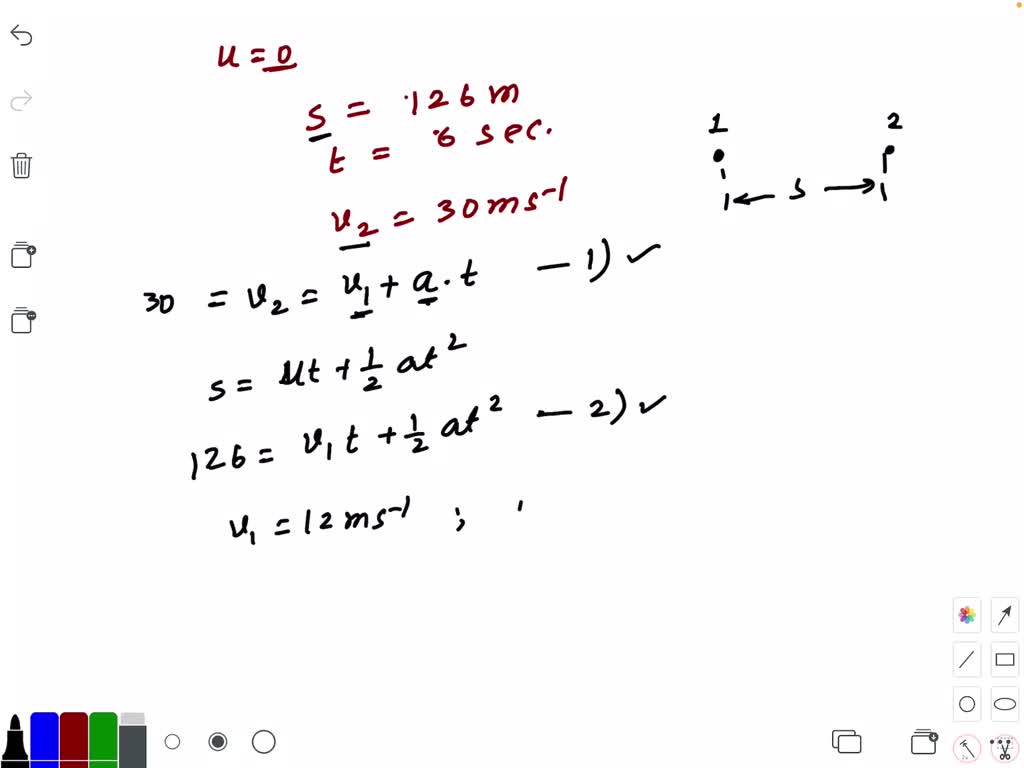 u = 0
s = 126 m
t = 6 sec.
1 2
← s →
v₂ = 30 ms⁻¹
30 = v₂ = v₁ + a · t — 1) ✓
s = ut + ½ at²
126 = v₁ t + ½ at² — 2) ✓
v₁ = 12 ms⁻¹ ;